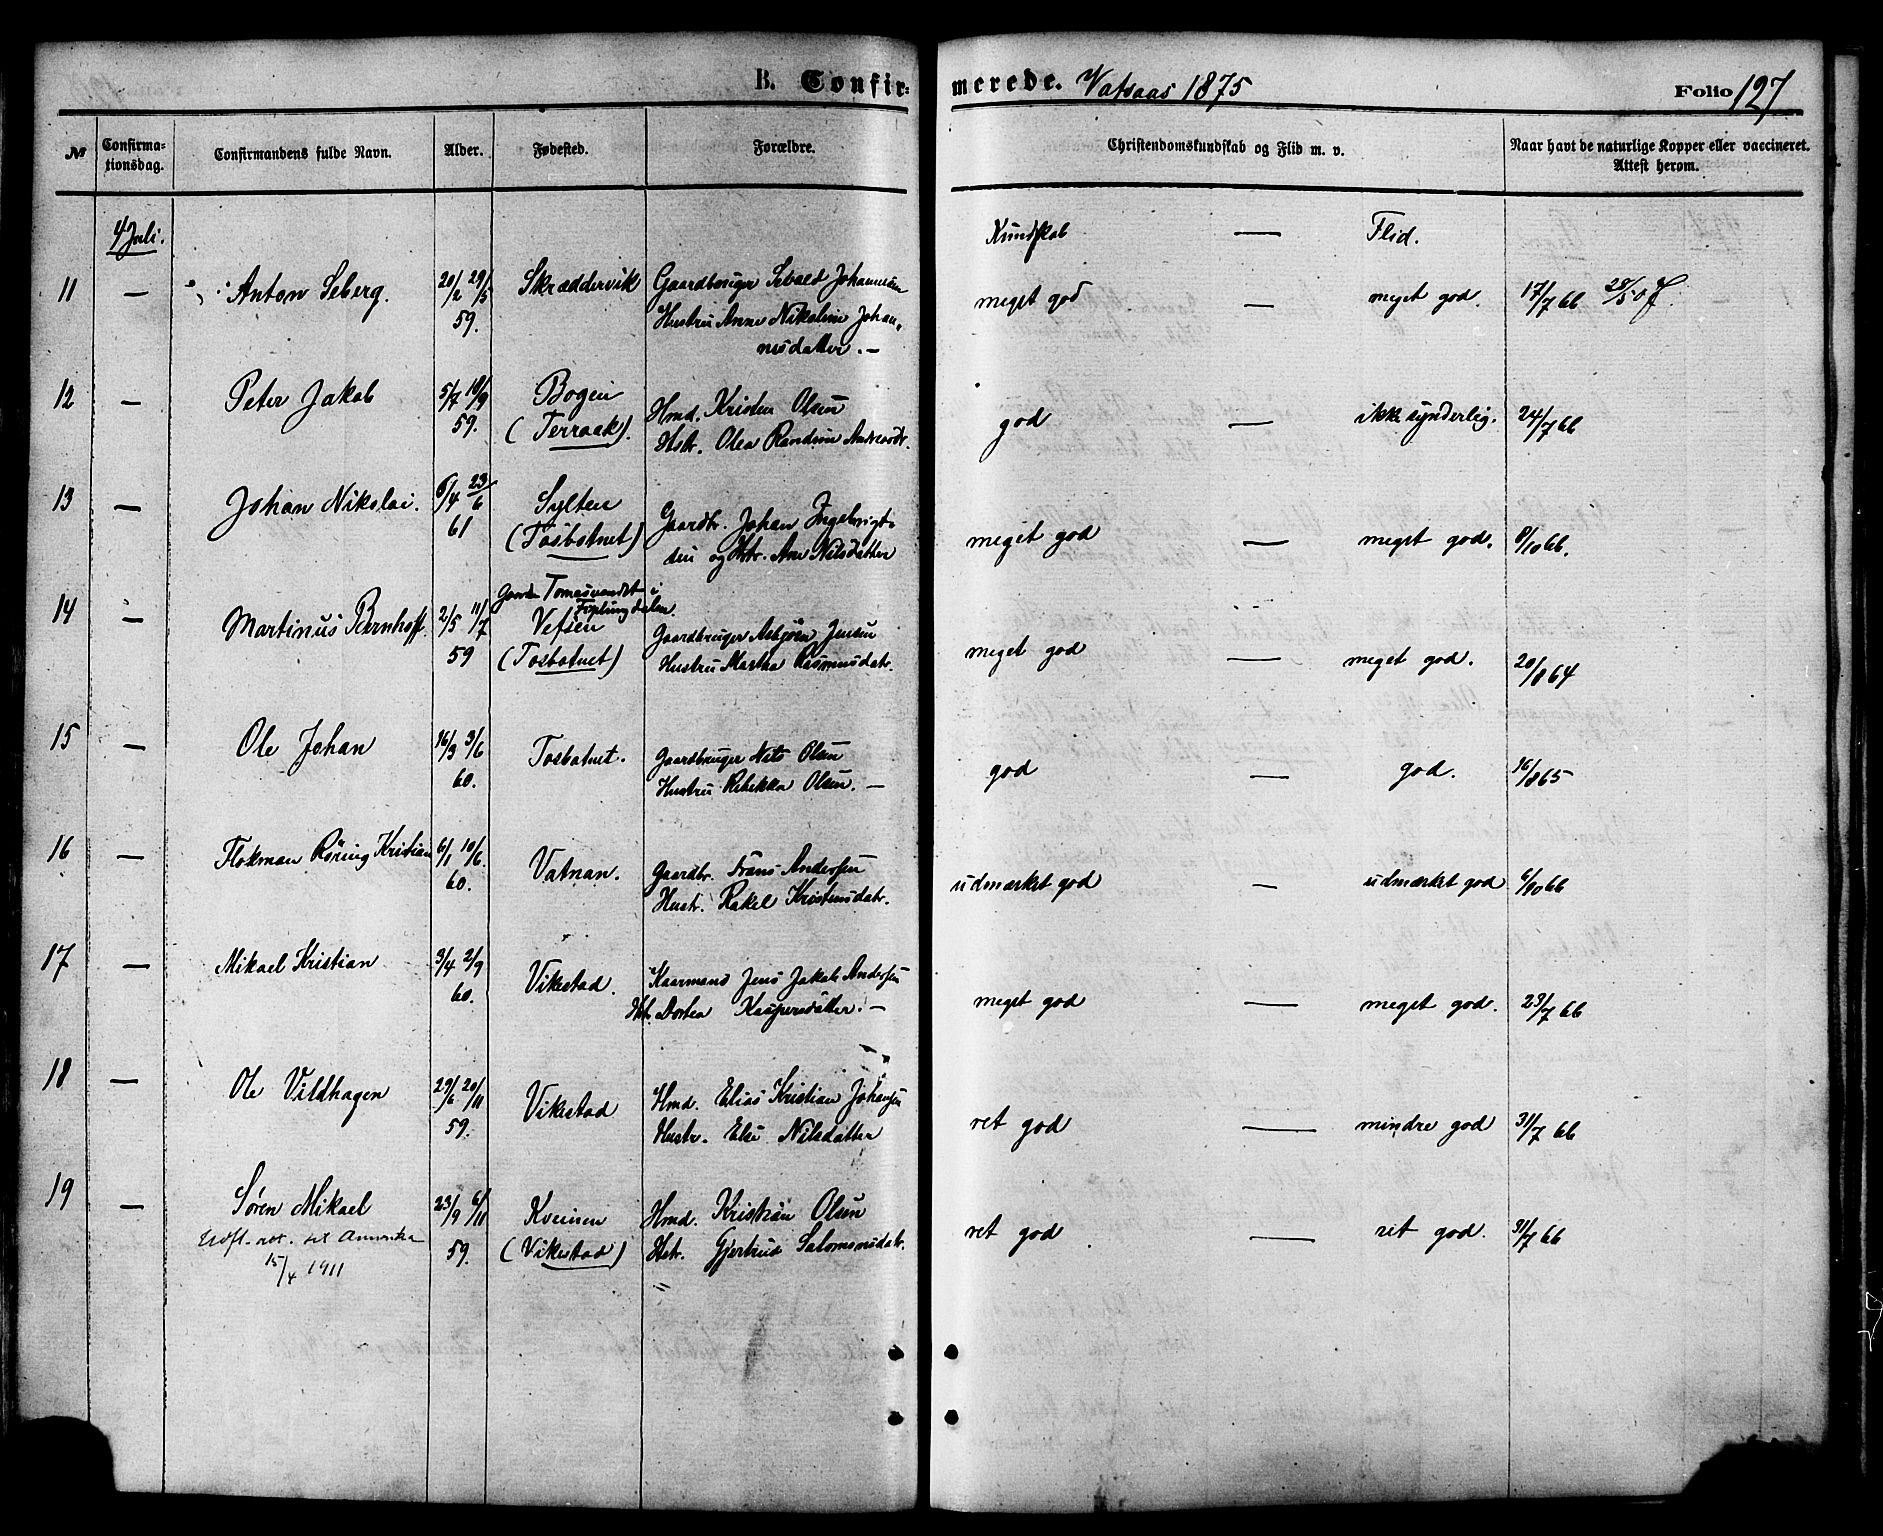 B. Confir-
merede. Vatsaas 1875
Folio 127
№
Confirma-
tionsdag.
Confirmandens fulde Navn.
Alder.
Fødested.
Forældre.
Christendomskundskab og Flid m. v.
Naar havt de naturlige Kopper eller vaccineret.
Attest herom.
4 Juli.
Kundskab — Flid.
11 — Anton Seberg. 20/2 29/5 Skræddervik Gaardbruger Sebald Johannesen meget god — meget god. 17/7 66 28/5 0
59. Hustru Anne Nikoline Johan-
nesdatter. —
12 — Peter Jakob 5/7 18/9 Bogen Hmd. Kristen Olsen god — ikke synderlig. 24/7 66
59. (Terraak). Hstr. Olea
13 — Johan Nikolai. 6/4 23/6 Sylten Gaardbr. Johan Ingebrigt-
61 (Tosbotnet) sen og Hstr. Ane Nilsdatter meget god — meget god. 8/10 66.
Tomasvandet i
14 — Martinus Bernhoff. 2/5 11/7 Vefsen Gaardbruger Asbjørn Jensen
59 (Tosbotnet) Hustru Martha Rasmusdatr. meget god — meget god. 20/8 64
15 — Ole Johan 16/3 3/6 Tosbotnet. Gaardbruger Nils Olsen god — god. 16/8 65
60. Hustru Rebekka Olsen. —
16 — Flokman Røring Kristian 6/1 10/6 Vatnan. Gaardbr. Frans Andersen udmærket god — udmærket god 6/10 66
60. Hustr. Rakel Kristensdatr.
17 — Mikael Kristian 3/4 2/9 Vikestad. Kaarmand Jens Jakob Andersen meget god — meget god. 23/7 66
60. Hstr. Dortea Kaspersdatter. —
18 — Ole Vildhagen 29/6 20/11 Vikestad Hmd. Elias Kristian Johansen
59. Hustr. Else Nilsdatter ret god — mindre god 31/7 66
19 — Søren Mikael 23/9 6/11 Kveinen Hmd. Kristian Olsen ret god — ret god. 31/7 66
Udft. att. til Amerika 59. (Vikestad) Hstr. Gjertrud Salomonsdatr.
15/4 1911